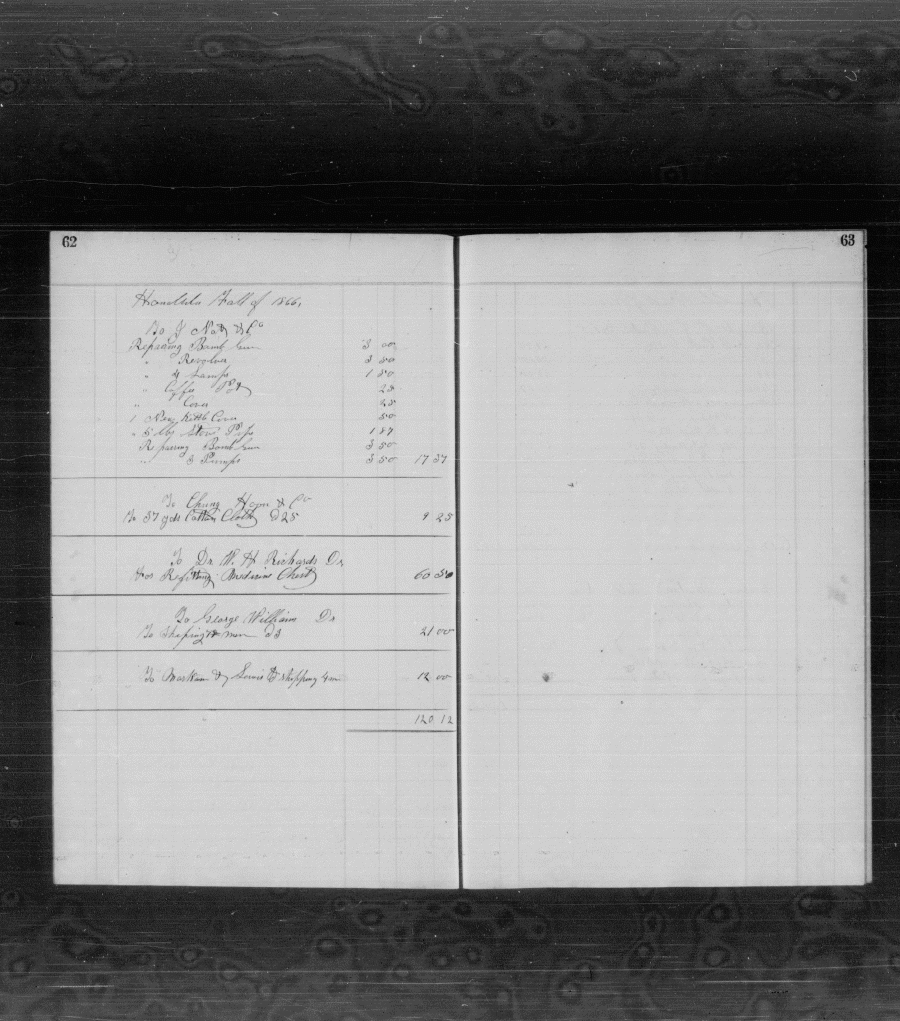 62
63
Honolulu Fall of 1866.
To J Nott & Co
Repairing Bomb Gun 3 00
" Revolver 3 50
" 4 Lamps 1 50
" Coffee Pot 25
" Cover 25
1 New Kettle Cover 50
" 5 lbs Stove Pipe 1 87
Repairing Bomb Gun 3 50
" 3 Pumps 3 50 17 37
To Chung Hoon & Co
To 37 yds Cotton Cloth @ 25 9 25
To Dr W. H Richards Dr
For Refitting Medicine Chest 60 50
To George William Dr
To Shiping men @ 3 21 00
To shipping 4 m 12 00
120 12